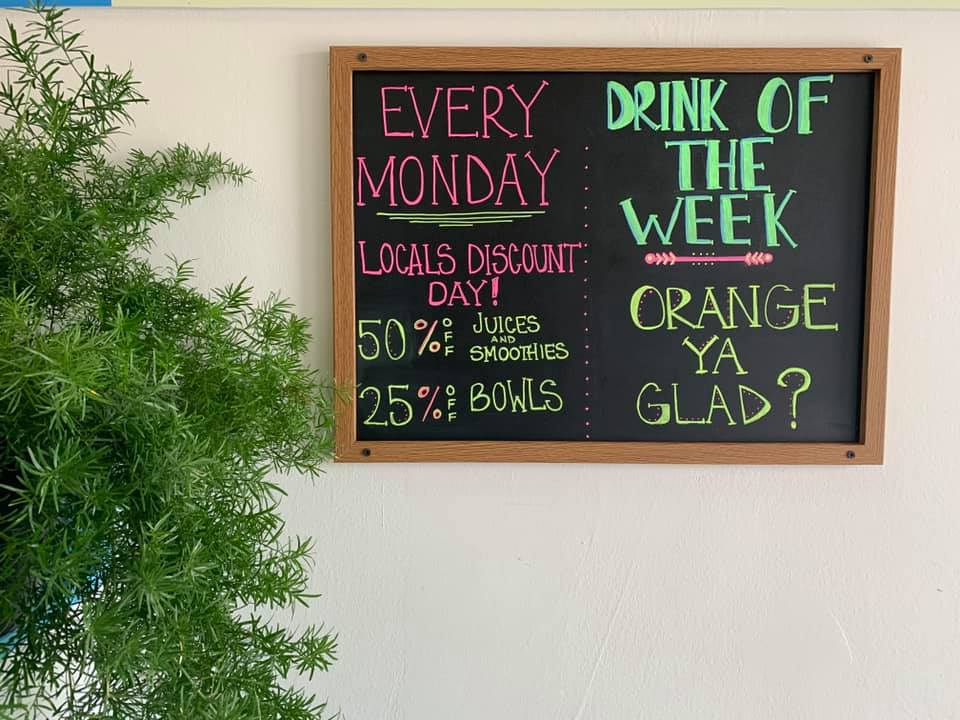 EVERY
MONDAY
LOCALS DISCOUNT
DAY!
50% OFF JUICES
AND
SMOOTHIES
25% OFF BOWLS
DRINK OF
THE
WEEK
ORANGE
YA
GLAD?